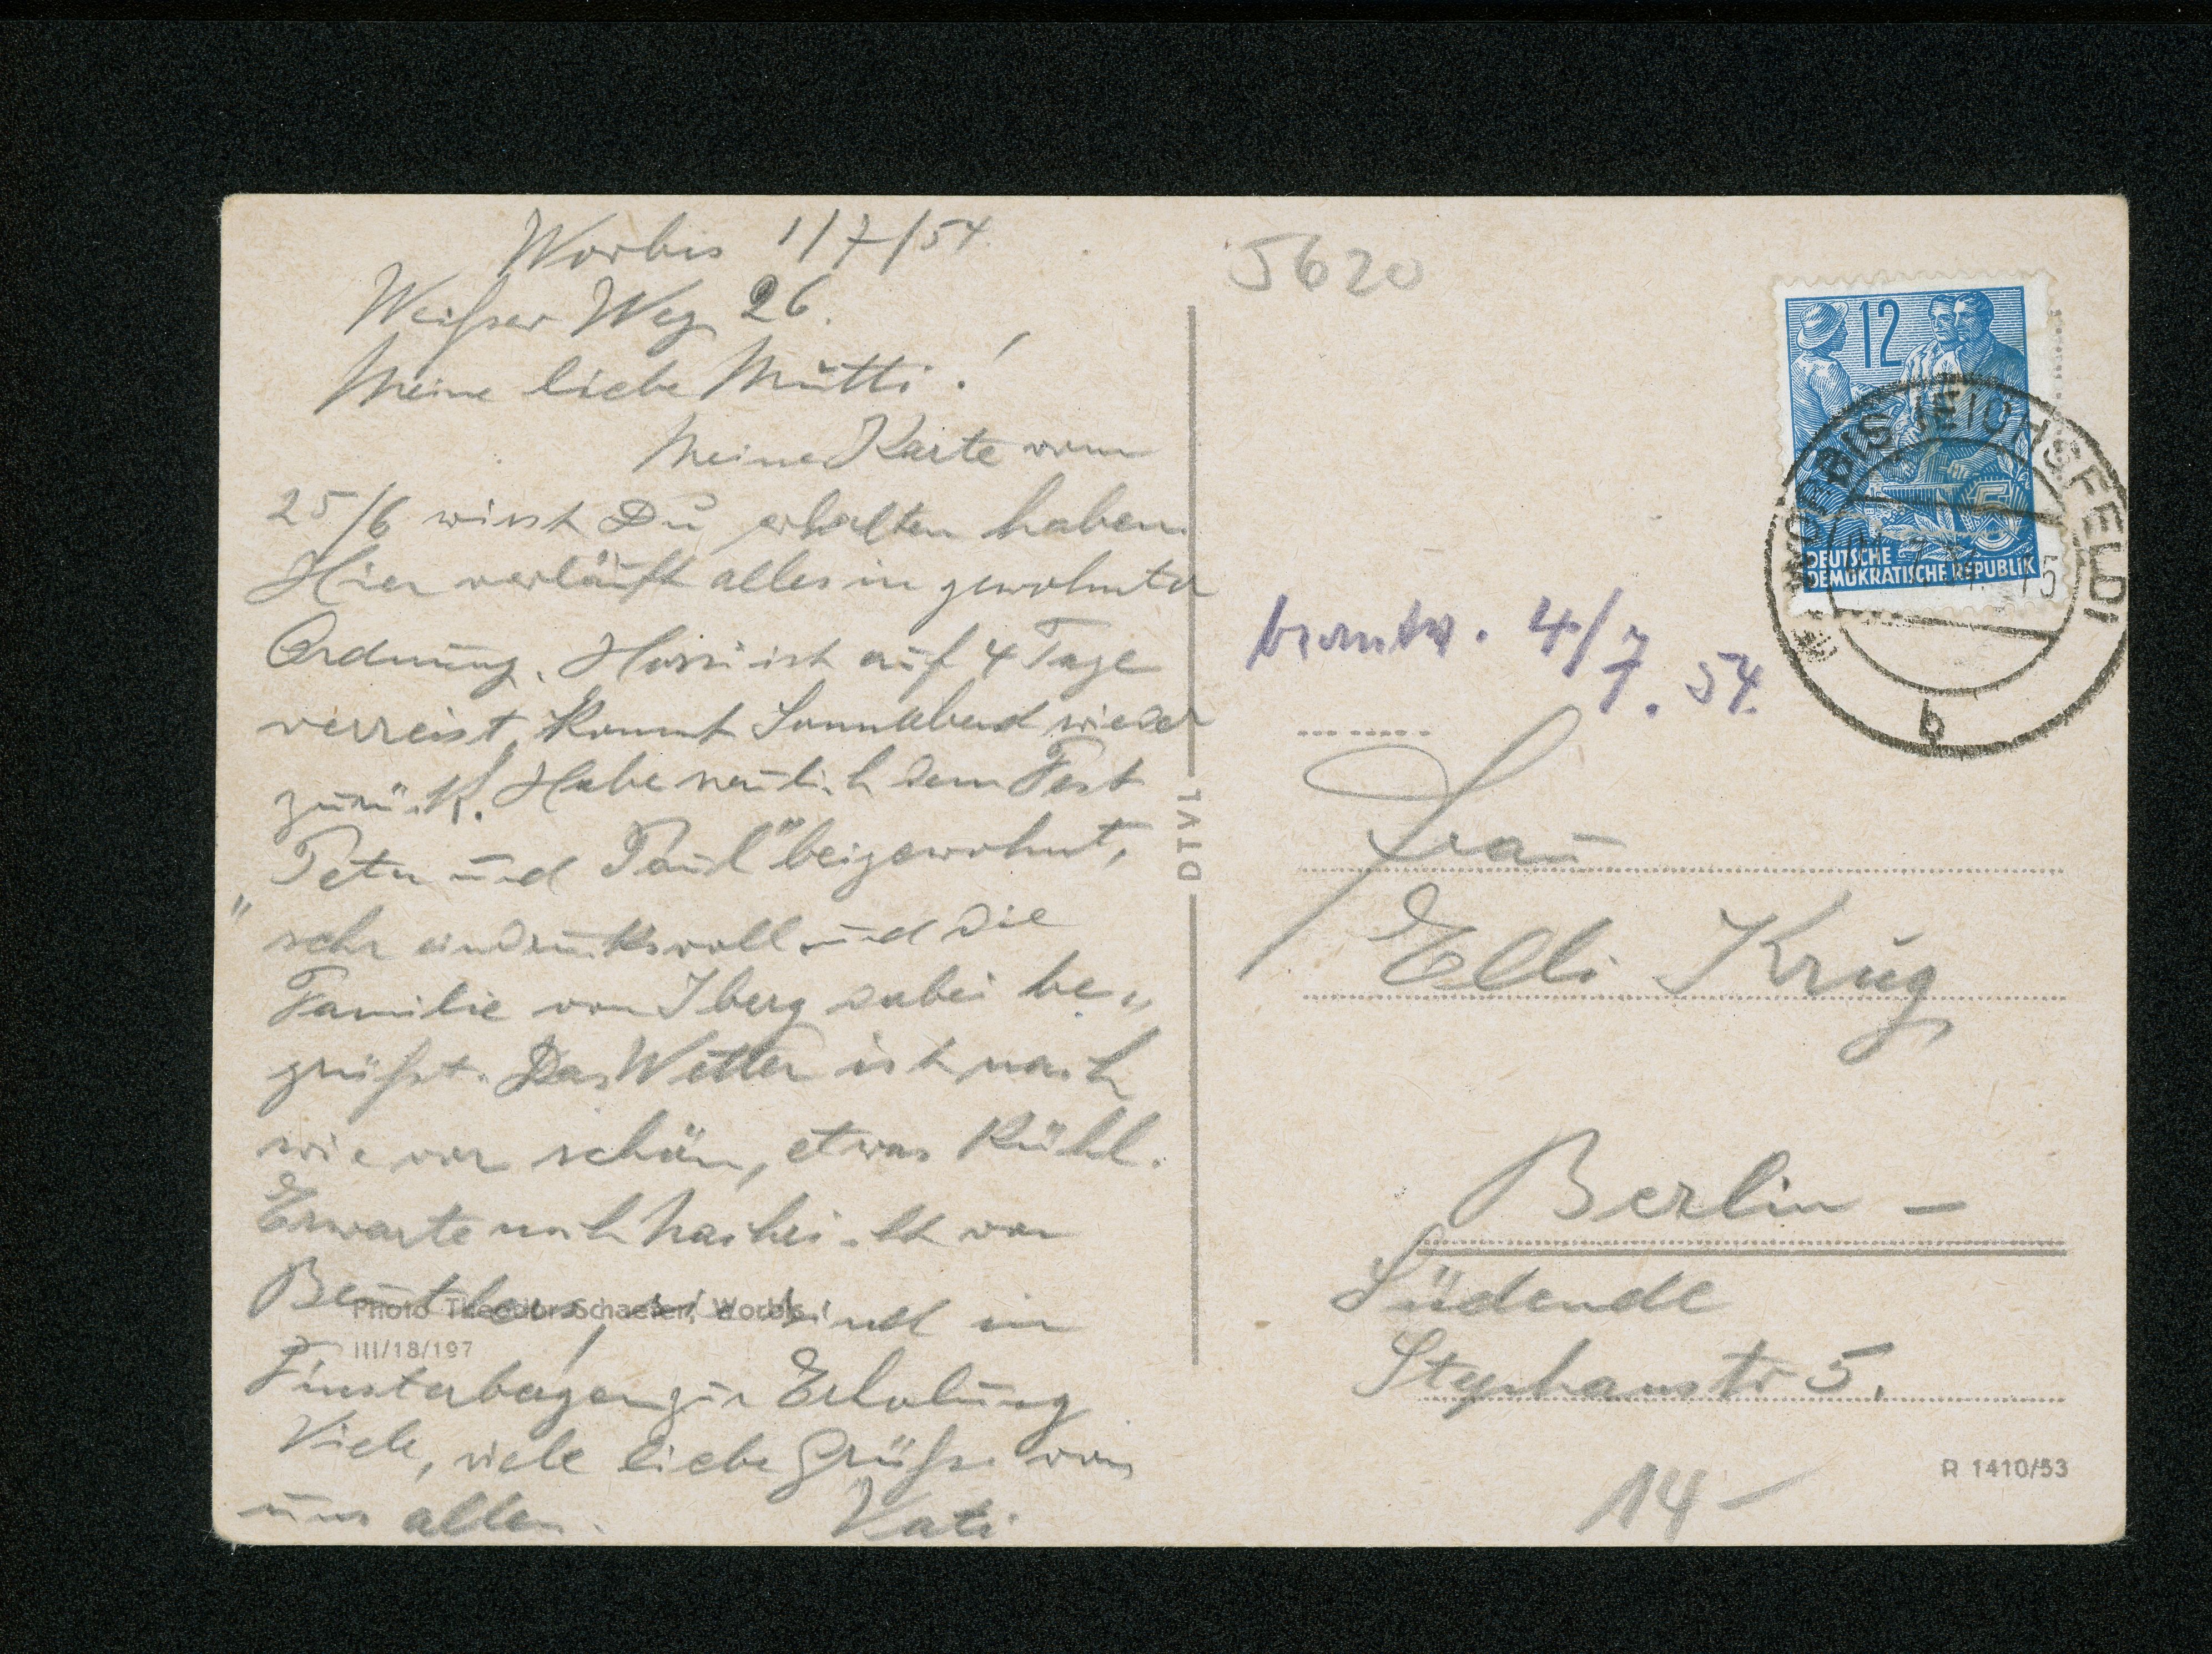 Worbis 1/7/54.
Weißer Weg 26.
Meine liebe Mutti!
Meine Karte vom
25/6 wirst Du erhalten haben.
Hier verläuft alles in gewohnter
Ordnung. ist auf 4 Tage
verreist, kommt Sonnabend wieder
zurück. Habe neulich dem Fest
„Peter und Paul" beigewohnt,
sehr eindrucksvoll und die
Familie von Iberg dabei be„
grüßt. Das Wetter ist nach
wie vor schön, etwas kühl.
Erwarte noch Nachricht von
sind in
Finsterbergen zur Erholung
Viele, viele liebe Grüße von
uns allen. Vati
Photo Theodor Schaefer, Worbis
III/18/197
DTVL
5620
12
DEUTSCHE
DEMOKRATISCHE REPUBLIK
WORBIS (EICHSFELD)
b
beantw. 4/7.54.
Frau
Elli Krug
Berlin –
Südende
Stephanstr 5.
R 1410/53
14 –